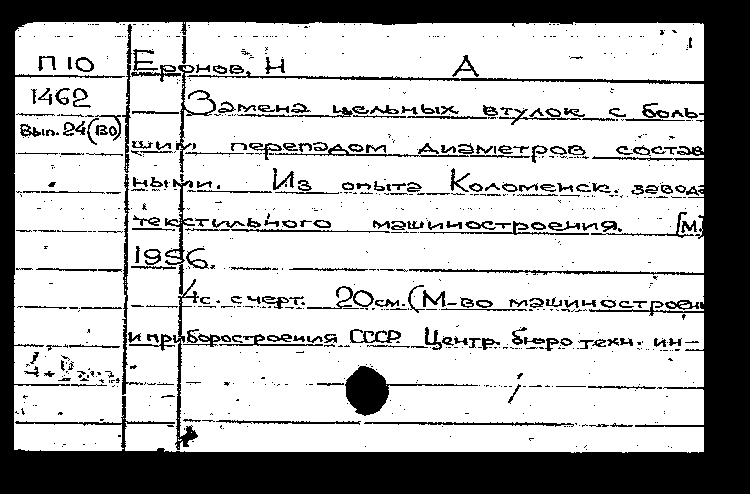 П 10 Еронов, Н А
1462 Замена цельных втулок с боль-
Вып. 24(130) шим перепадом диаметров состав
ными. Из опыта Коломенск. завода
текстильного машиностроения. [М.]
1956.
4с. с черт. 20см. (М-во машиностроени
и приборостроения СССР. Центр. бюро техн. ин-